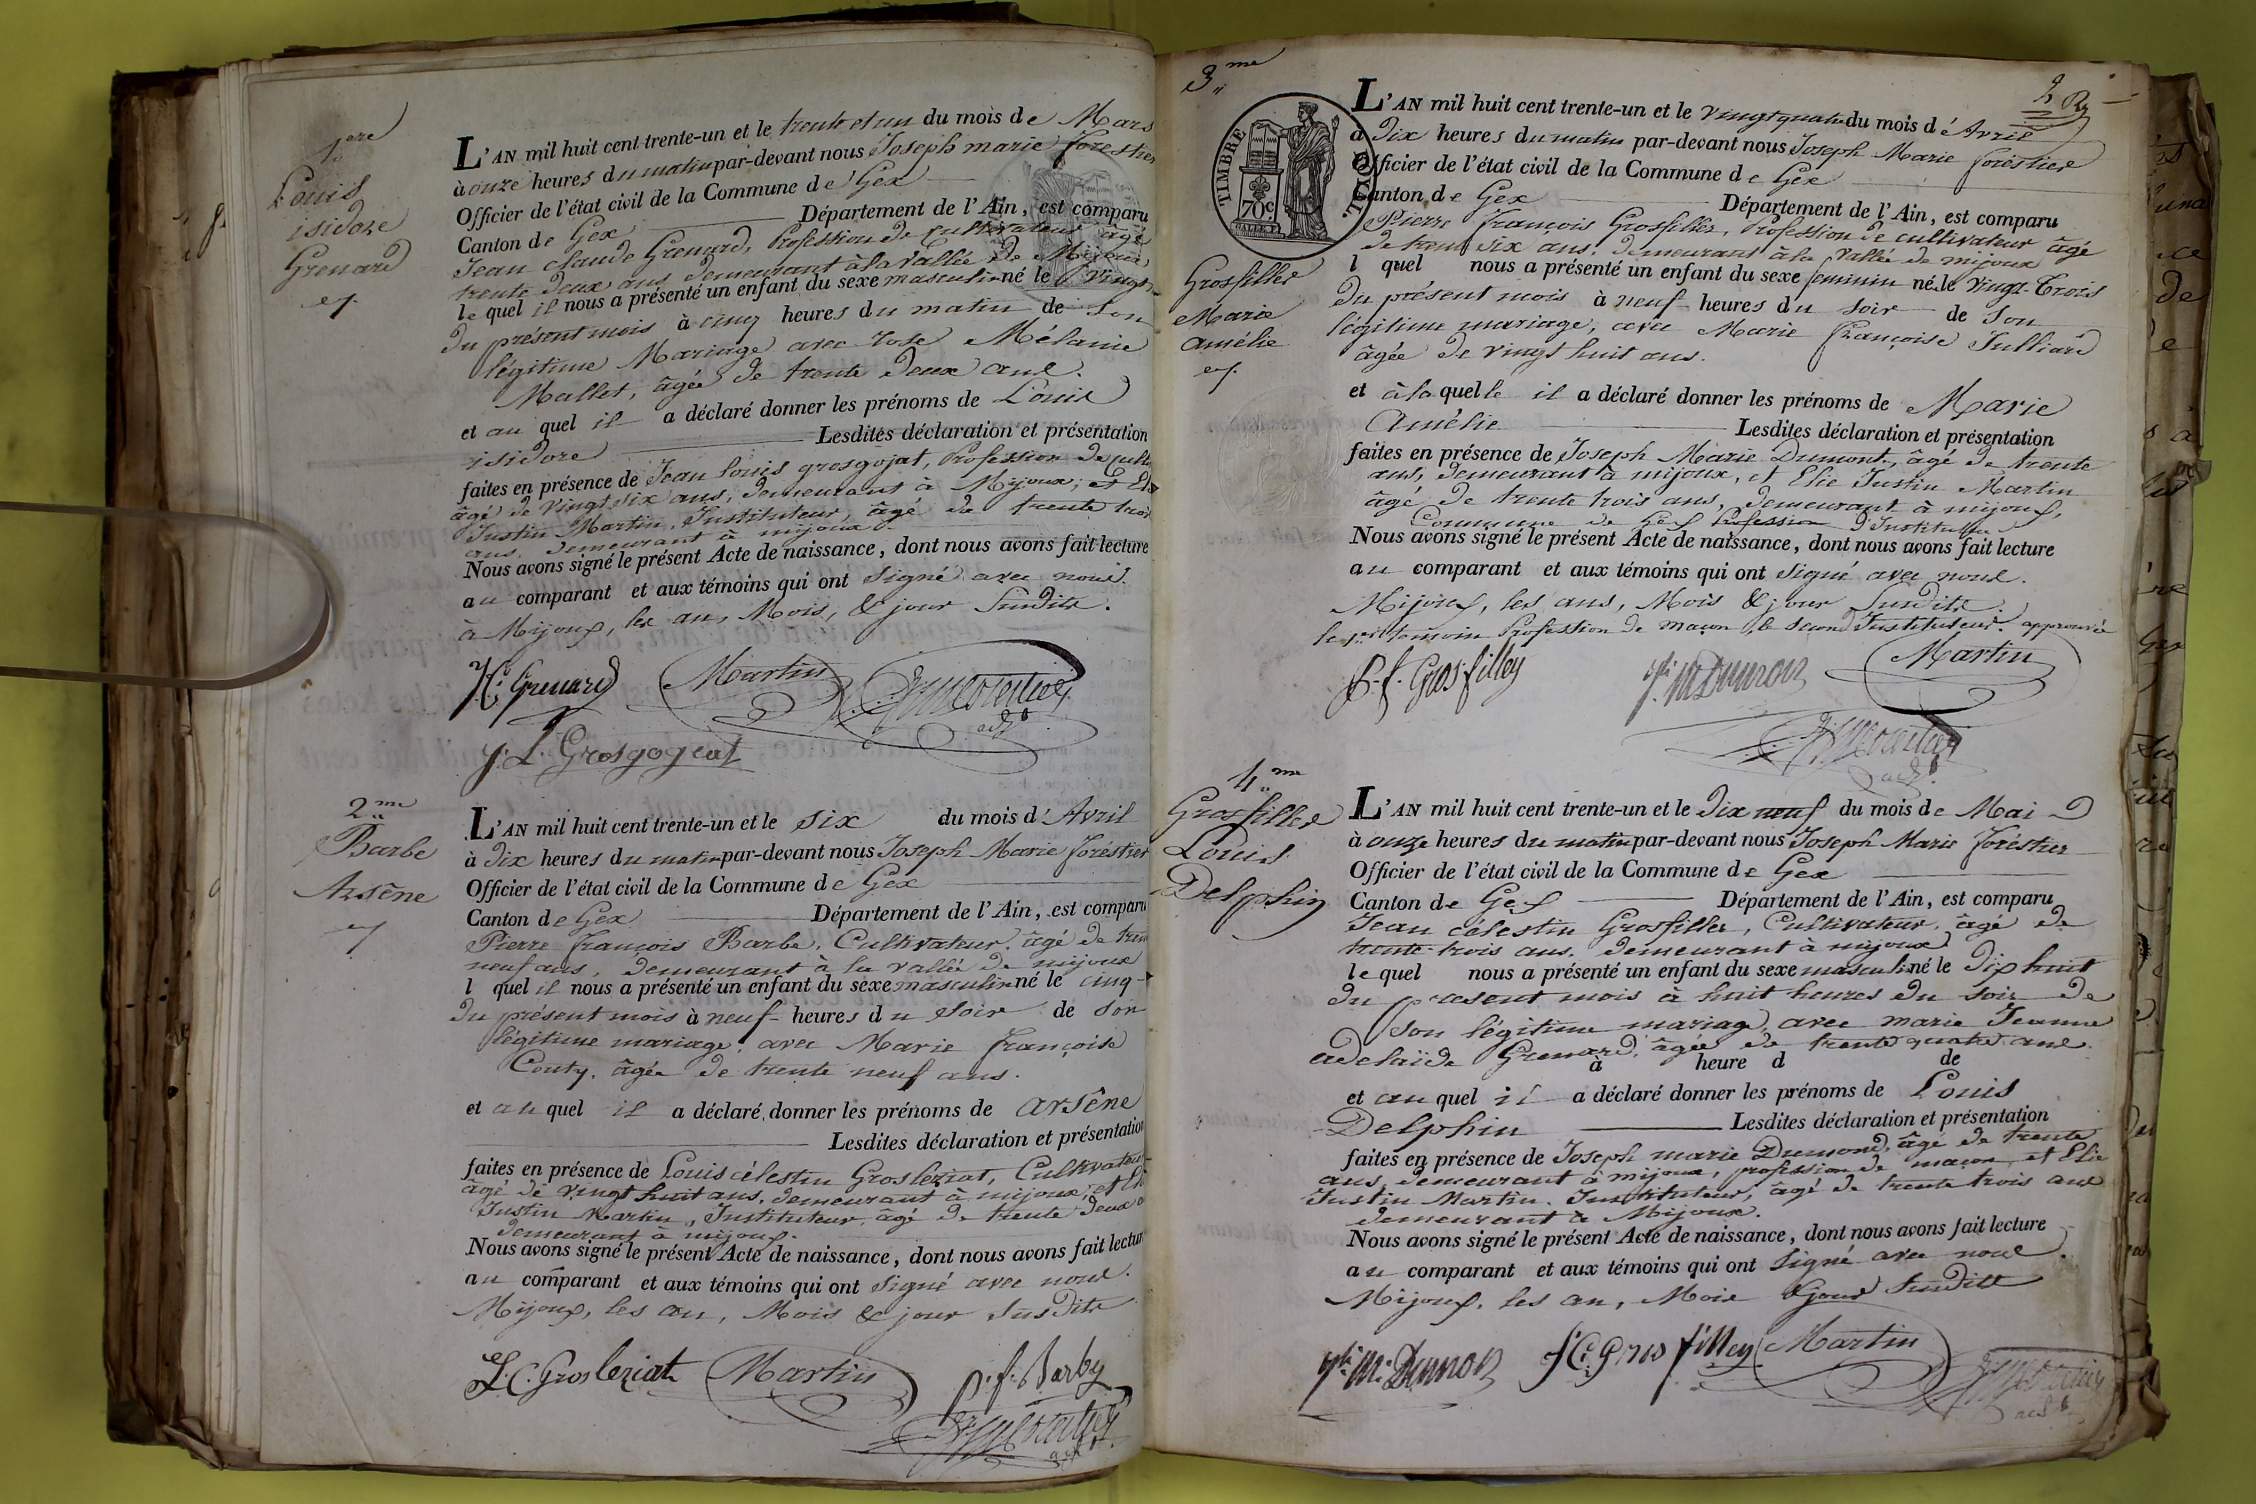 1ere
Louis
isidore
Grenard
L'AN mil huit cent trente-un et le trente et un du mois de Mars
à onze heures du matin par-devant nous Joseph marie forestier
Officier de l'état civil de la Commune de Gex
Canton de Gex Département de l'Ain, est comparu
Jean Claude Grenard, Profession de cultivateur âgé
trente deux ans demeurant à la Vallée de Mijoux
le quel il nous a présenté un enfant du sexe masculin né le vingt
du présent mois à cinq heures du matin de Son
légitime Mariage avec Rose Mélanie
Mallet, âgée de trente deux ans.
et au quel il a déclaré donner les prénoms de Louis
isidore Lesdites déclaration et présentation
faites en présence de Jean Louis grosgojat, Profession de cult
âgé de vingt six ans, demeurant à Mijoux; et Elie
Justin Martin, Instituteur, âgé de trente trois
ans, demeurant à mijoux.
Nous avons signé le présent Acte de naissance, dont nous avons fait lecture
au comparant et aux témoins qui ont signé avec nous.
à Mijoux, les an, Mois, & jour Susdits.
J C Grenard Martin
J. L. Grosgogeat
2me
Barbe
Arsène
L'AN mil huit cent trente-un et le six du mois d'Avril
à dix heures du matin par-devant nous Joseph Marie forestier
Officier de l'état civil de la Commune de Gex
Canton de Gex Département de l'Ain, est comparu
Pierre françois Barbe, Cultivateur, âgé de trente
neuf ans, demeurant à la vallée de mijoux
l quel il nous a présenté un enfant du sexe masculin né le cinq
du présent mois à neuf heures du soir de son
légitime mariage, avec Marie françoise
Couty, âgée de trente neuf ans.
et au quel il a déclaré donner les prénoms de arsène
Lesdites déclaration et présentation
faites en présence de Louis célestin Grosleziat, Cultivateur
âgé de vingt huit ans, demeurant à mijoux; et Elie
Justin Martin, Instituteur, âgé de trente deux a
demeurant à mijoux.
Nous avons signé le présent Acte de naissance, dont nous avons fait lecture
au comparant et aux témoins qui ont signé avec nous.
Mijoux, les an, Mois & jour susdits
L. C. Grosleziat Martin p. f. Barby
3me
TIMBRE ROYAL
70c
Grosfiller
Marie
Amélie
L'AN mil huit cent trente-un et le vingt quatre du mois d'Avril
à Dix heures du matin par-devant nous Joseph Marie forestier
Officier de l'état civil de la Commune de Gex
Canton de Gex Département de l'Ain, est comparu
Pierre françois Grosfiller, Profession de cultivateur âgé
de trente six ans, demeurant à la Vallée de mijoux
l quel nous a présenté un enfant du sexe féminin né le vingt-trois
du présent mois à neuf heures du soir de Son
légitime mariage, avec Marie françoise Julliard
âgée de vingt huit ans.
et à la quelle il a déclaré donner les prénoms de Marie
Amélie Lesdites déclaration et présentation
faites en présence de Joseph Marie Dumont, âgé de trente
ans, demeurant à mijoux, et Elie Justin Martin
âgé de trente trois ans, demeurant à mijoux,
Commune de Gex Profession d'Instituteur
Nous avons signé le présent Acte de naissance, dont nous avons fait lecture
au comparant et aux témoins qui ont signé avec nous.
Mijoux, les ans, Mois & jour Susdits.
le 1er témoin Profession de maçon, le second Instituteur. approuvé
P. f. Gros filley Martin
4me
Grosfiller
Louis
Delphin
L'AN mil huit cent trente-un et le Dix neuf du mois de Mai
à onze heures du matin par-devant nous Joseph Marie forestier
Officier de l'état civil de la Commune de Gex
Canton de Gex Département de l'Ain, est comparu
Jean célestin Grosfiller, Cultivateur, âgé de
trente-trois ans, demeurant à mijoux
le quel nous a présenté un enfant du sexe masculin né le dix huit
du présent mois à huit heures du soir de
son légitime mariage, avec marie Jeanne
adelaïde Grenard, âgée de trente quatre ans.
à heure d de
et au quel il a déclaré donner les prénoms de Louis
Delphin Lesdites déclaration et présentation
faites en présence de Joseph marie Dumond, âgé de trente
ans, demeurant à mijoux, profession de maçon, et Elie
Justin Martin, Instituteur, âgé de trente trois ans
demeurant à Mijoux.
Nous avons signé le présent Acte de naissance, dont nous avons fait lecture
au comparant et aux témoins qui ont signé avec nous.
Mijoux, les an, Mois & jour susdits
Martin